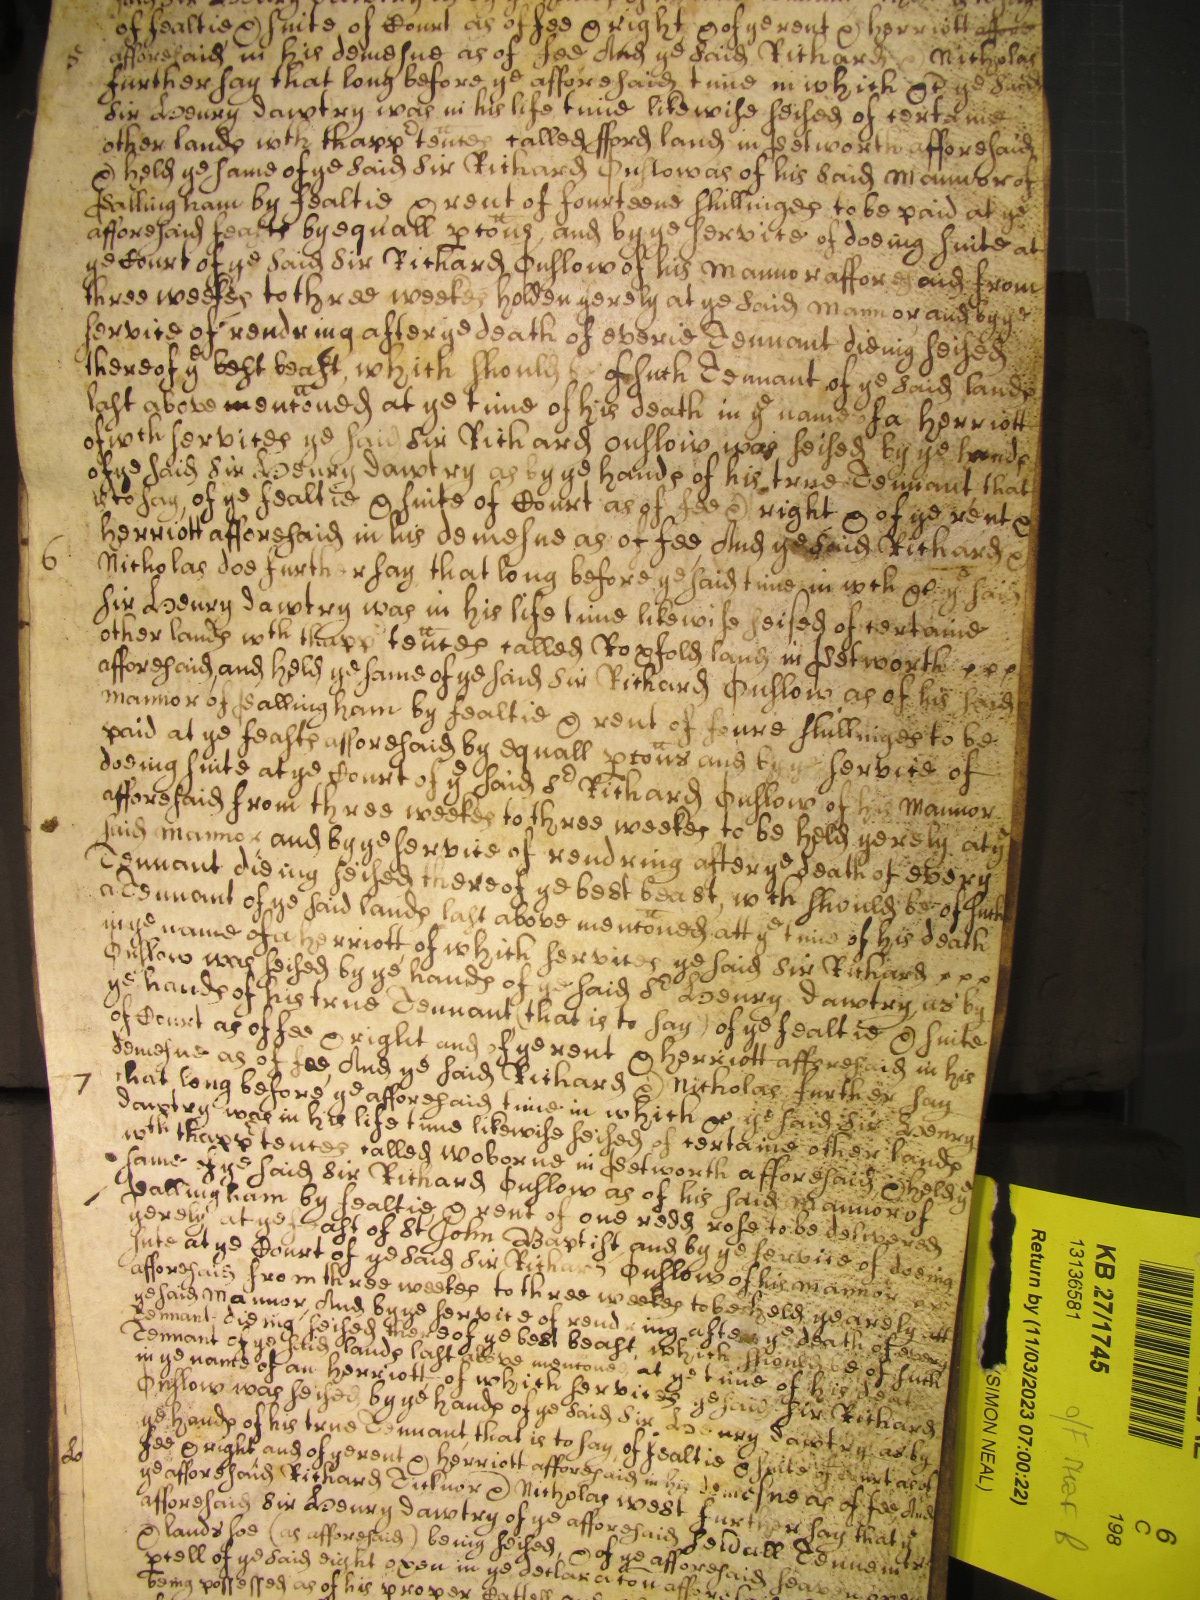 of fealtie & suite of Court as of fee & right & of ye rent & herriott
5
afforesaid in his demesne as of fee And ye said Richard & Nicholas
further say that long before ye afforesaid time in which &c ye said
Sir Henry Dawtry was in his life time likewise seised of certaine
other lands wth thapptences called fford land in Petworth afforesaid
& held ye same of ye said Sir Richard Onslow as of his said Mannor of
Pallingham by fealtie & rent of fourteene shillinges to be paid at ye
afforesaid feasts by equall pcons, and by ye service of doeing suite at
ye Court of ye said Sir Richard Onslow of his Mannor afforesaid from
three weekes to three weekes holden yerely at ye said Mannor, and by ye
service of rendring after ye death of everie Tennant dieing seised
thereof ye best beast, which should be of such Tennant of ye said lands
last above menconed at ye time of his death in ye name of a herriott
of wch services ye said Sir Richard Onslow was seised by ye hands
of ye said Sir Henry Dawtry as by ye hands of his true Tennant that
is to say, of ye fealtie & suite of Court as of fee & right & of ye rent &
herriott afforesaid in his demesne as of fee, And ye said Richard &
6
Nicholas doe further say that long before ye said time in wch &c ye said
Sir Henry Dawtry was in his life time likewise seised of certaine
other lands wth thapptences called Roxfold land in Petworth
afforesaid, and held ye same of ye said Sir Richard Onslow as of his said
mannor of Pallingham by fealtie & rent of foure shillinges to be
paid at ye feasts afforesaid by equall pcons and by ye service of
doeing suite at ye Court of ye said Sr Richard Onslow of his Mannor
afforesaid from three weekes to three weekes to be held yerely at ye
said mannor and by ye service of rendring after ye death of every
Tennant dieing seised thereof ye best beast, wch should be of such
a Tennant of ye said lands last above menconed att ye time of his death
in ye name of a herriott, of which services ye said Sir Richard
Onslow was seised by ye hands of ye said Sr Henry Dawtry, as by
ye hands of his true Tennant (that is to say) of ye fealtie & suite
of Court as of fee & right and of ye rent & herriott afforesaid in his
demesne as of fee, And ye said Richard & Nicholas further say
7
that long before ye afforesaid time in which &c ye said Sir Henry
Dawtry was in his life time likewise seised of certaine other lands
wth thapptences called Woborne in Petworth afforesaid, & held ye
same of ye said Sir Richard Onslow as of his said Mannor of
Pallingham by fealtie & rent of one redd rose to be delivered
yerely at ye feast of St John Baptist, and by ye service of doeing
sute at ye Court of ye said Sir Richard Onslow of his mannor
afforesaid from three weekes to three weekes to be held yearely att
ye said Mannor, And by ye service of rendring after ye death of every
Tennant dieing seised thereof ye best beast, which should be of such
Tennant of ye said lands last above menconed at ye time of his death
in ye name of an herriott of which services ye said Sir Richard
Onslow was seised by ye hands of ye said Sir Henry Dawtry, as by
ye hands of his true Tennant, that is to say, of fealtie & suite of Court as of
fee & right and of ye rent & herriott afforesaid in his demesne as of fee And
ye afforesaid Richard Ticknor & Nicholas West further say that ye
afforesaid Sir Henry Dawtry of ye afforesaid severall Tenements
& lands soe (as afforesaid) being seised, & of ye afforesaid seaven oxen
pcell of ye said eight oxen in ye declaracon afforesaid
being possessed as of his proper
KB 27/1745
13136581
Return by (11/03/2023 07:00:22)
(SIMON NEAL)
6
C
198